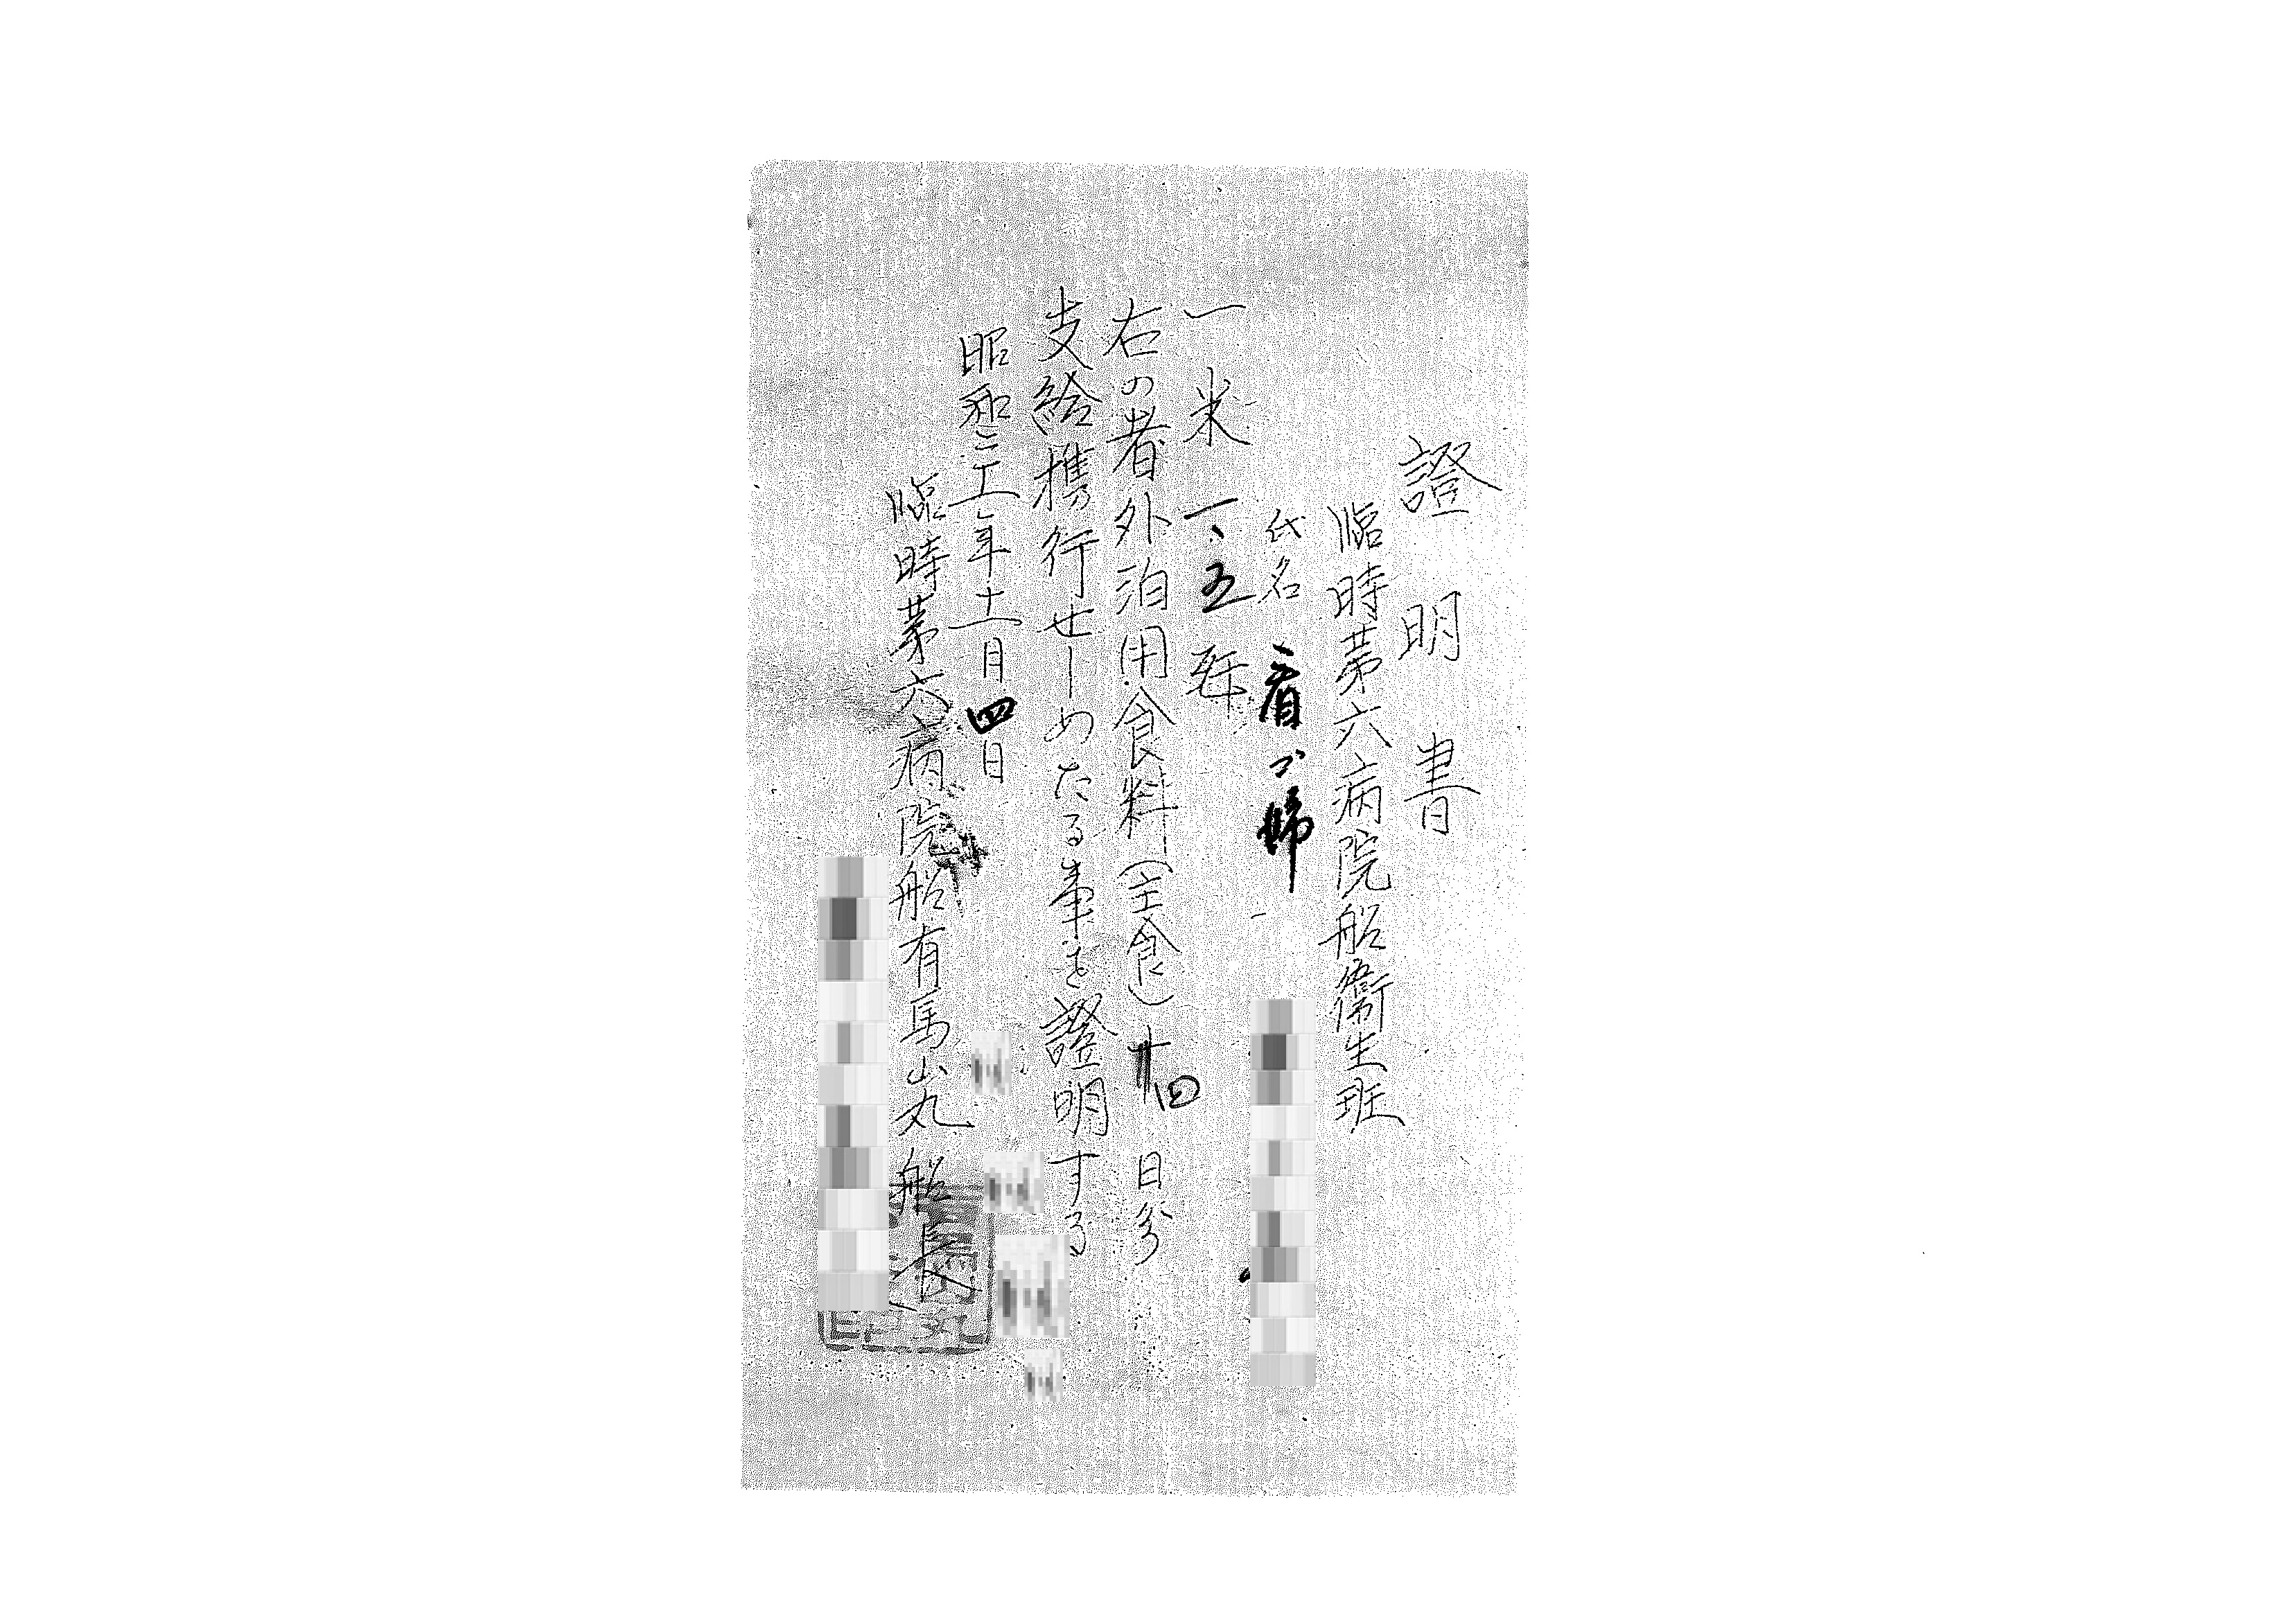 證明書
臨時第六病院船衞生班
氏名 看ゴ婦
一米 一、五瓩
右の者外泊用食料(主食)十四日分
支給携行せしめたる事を證明する
昭和二十一年十一月四日
臨時第六病院船有馬山丸船長